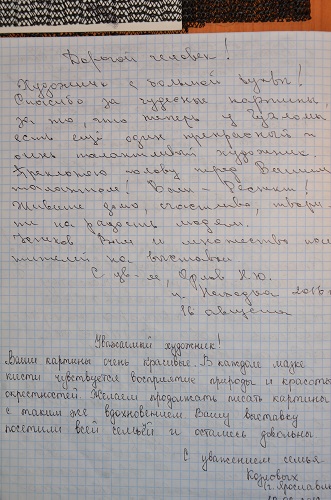 Дорогой человек!
Художник с большой буквы!
Спасибо за чудесные картины.
За то, что теперь у Чухломы
есть ещё один прекрасный и
очень талантливый художник.
Преклоняю голову перед Вашим
талантом! Ваш -
Живите долго, счастливо, твори-
те на радость людям.
Успехов Вам и множество посе
тителей на выставки
С ув-ем, Орлов Н.Ю.
г. Находка 2016 г
16 августа
Уважаемый художник!
Ваши картины очень красивые. В каждом мазке
кисти чувствуется восприятие природы и красоты
окрестностей. Желаем продолжать писать картины
с таким же вдохновением. Вашу выставку
посетили всей семьёй и остались довольны
С уважением семья
Козловых
г. Ярославль